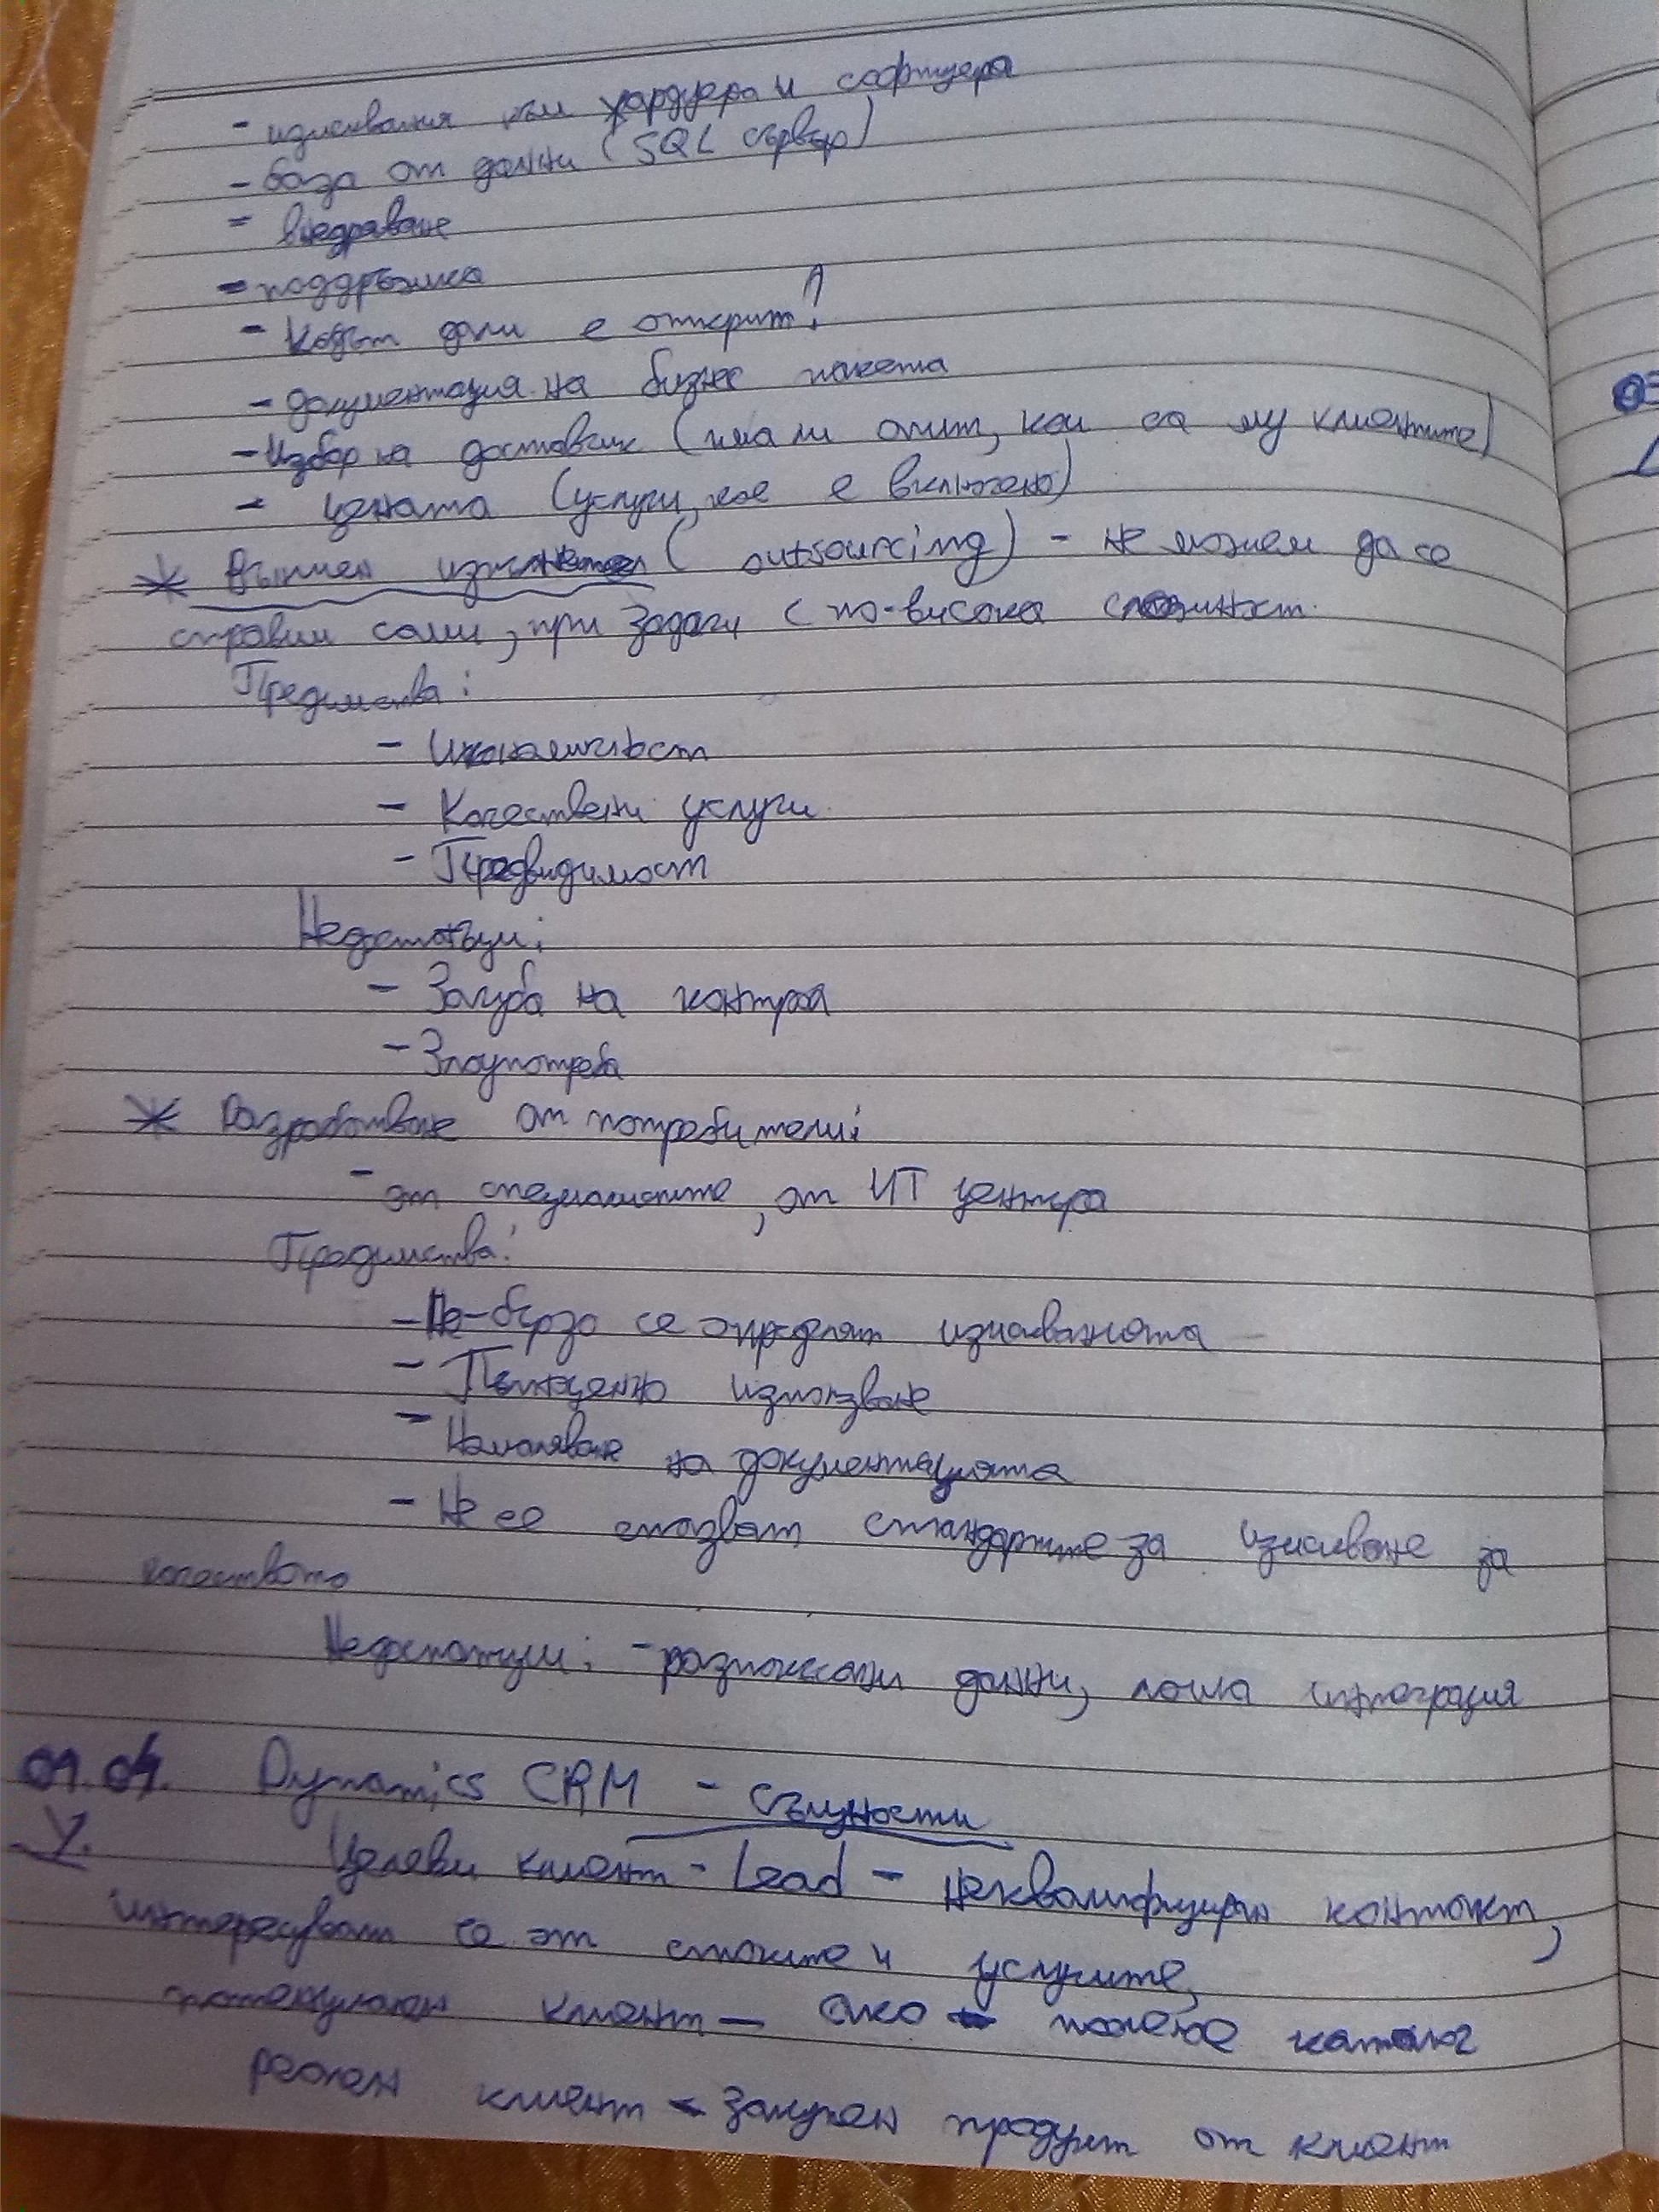 - изисквания към хардуера и софтуера
- база от данни (SQL сървър)
- внедряване
- поддръжка
- Кодът дали е открит!
- документация на бизнес пакета
- Избор на доставчик (има ли опит, кои са му клиентите)
- цената (услуги, кое е включено)
* Външен (outsourcing) - не можем да се
справим сами, при задачи с по-висока сложност.
Предимства:
- Икономичност
- Качествени услуги
- Предвидимост
Недостатъци:
- Загуба на контрол
- Злоупотреба
* Разработване от потребители:
- от специалистите, от ИТ центъра
Предимства:
- По-бързо се определят изискванията
- Пълноценно използване
- Намаляване на документацията
- Не се спазват стандартите за изискване за
качеството
Недостатъци: - разпокъсани данни, лоша интеграция
01.04. Dynamics CRM - същности
У. Целеви клиент - Lead - неквалифициран контакт,
интересуват се от стоките и услугите,
потенциален клиент - ако пожелае каталог
реален клиент - закупен продукт от клиент
03